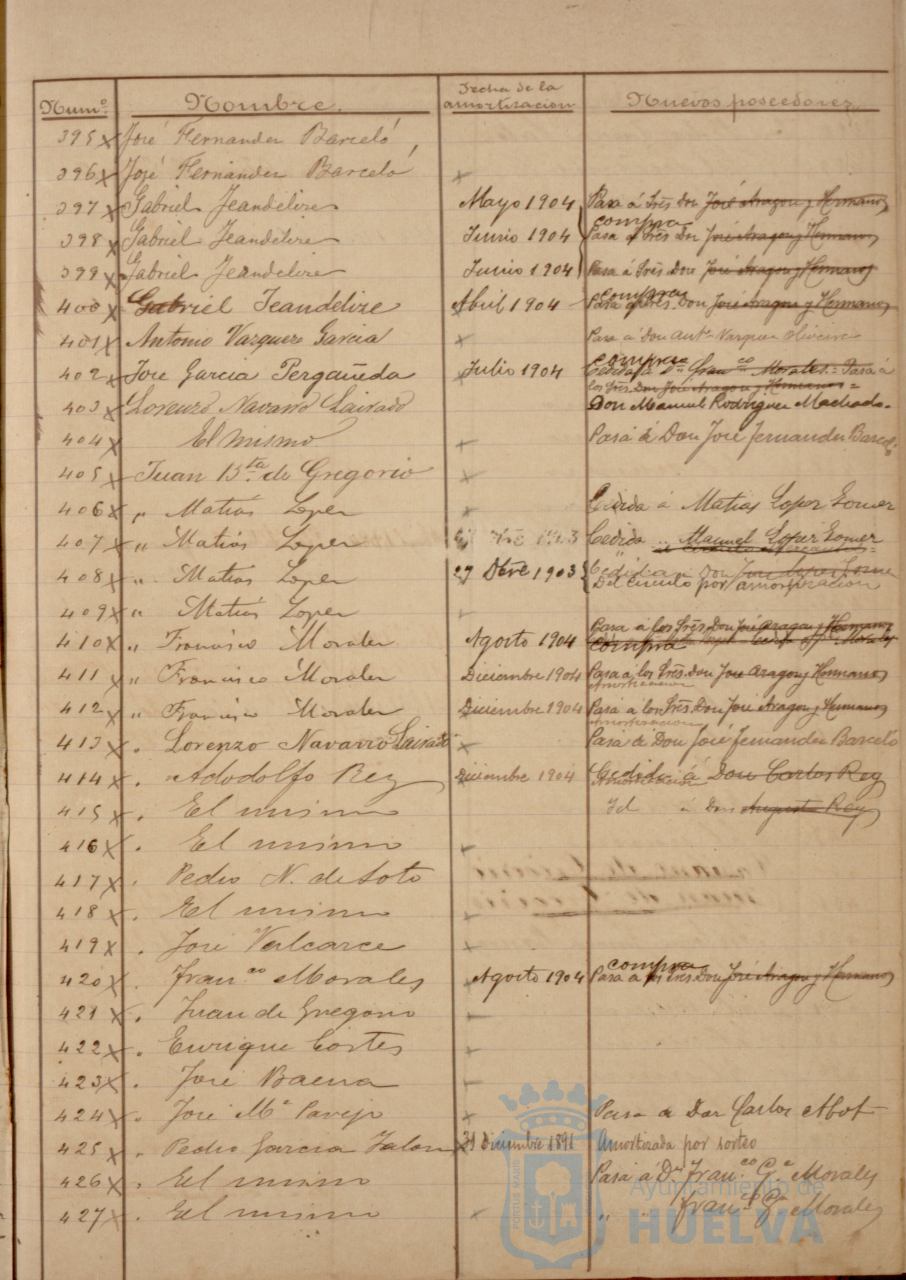 Numº Nombre. Fecha de la amortizacion Nuevos poseedores
395 José Fernandez Barceló
396 José Fernandez Barceló
397 Gabriel Jeandelize Mayo 1904 Pasa á Srês Don José Aragon y Hermanos
compra
398 Gabriel Jeandelize Junio 1904 Pasa á Srês Don José Aragon y Hermanos
399 Gabriel Jeandelize Junio 1904 Pasa á Srês Don José Aragon y Hermanos
compra
400 Gabriel Jeandelize Abril 1904 Pasa á Srês. Don José Aragon y Hermanos
401 Antonio Vazquez Garcia Pasa á Don Antº Vazquez
compra
402 Jose Garcia Pergañeda Julio 1904 Cedida á Dn Franco Morales = Pasá á
los Srês Don José Aragon y Hermanos =
403 Lorenzo Navarro Don Manuel Rodriguez Machado.
404 El mismo Pasá á Don José Fernandez Barceló
405 Juan Bta de Gregorio
406 " Matias Lopez Cedida á Matias Lopez Gomez
407 " Matias Lopez 1903 Cedida " Manuel Lopez Gomez
408 " Matias Lopez 27 Dbre 1903 Cedida á Don Jose Lopez Gomez
Del Circulo por amortizacion
409 " Matias Lopez
410 " Francisco Morales Agosto 1904 Pasa á los Srês Don José Aragon y Hermanos
compra
411 " Francisco Morales Diciembre 1904 Pasa á los Srês. Don José Aragon y Hermanos
amortizacion
412 " Francisco Morales Diciembre 1904 Pasa a los Srês Don José Aragon y Hermanos
amortizacion
413 . Lorenzo Navarro Pasá á Don José Fernandez Barceló
414 . Adodolfo Rey Diciembre 1904 Cedida á Don Carlos Rey
amortizacion
415 . El mismo Id á Don Augusto Rey
416 . El mismo
417 . Pedro N. de Soto
418 . El mismo
419 . José Valcarce
compra
420 . Franco Morales Agosto 1904 Pasa á los Srês Don José Aragon y Hermanos
421 . Juan de Gregorio
422 . Enrique Cortes
423 . José Baena
424 . José Mª Pavejo Pasa á Don Carlos Abot
425 . Pedro Garcia Jalon 31 Diciembre 1891 Amortizada por sorteo
426 . El mismo Pasa á Dn Franco Gª Morales
427 . El mismo " " Franco Gª Morales
Ayuntamiento de
HUELVA
PORTUS MARIS